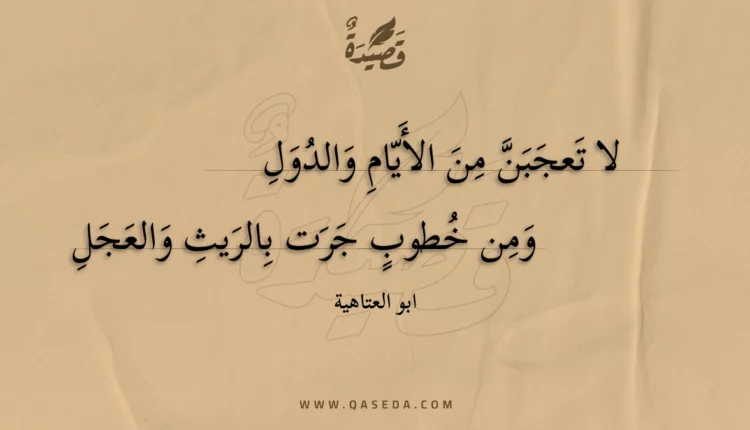 قَصِيْدَةٌ
لا تَعجَبَنَّ مِنَ الأَيّامِ وَالدُوَلِ
وَمِن خُطوبٍ جَرَت بِالرَيثِ وَالعَجَلِ
ابو العتاهية
WWW.QASEDA.COM